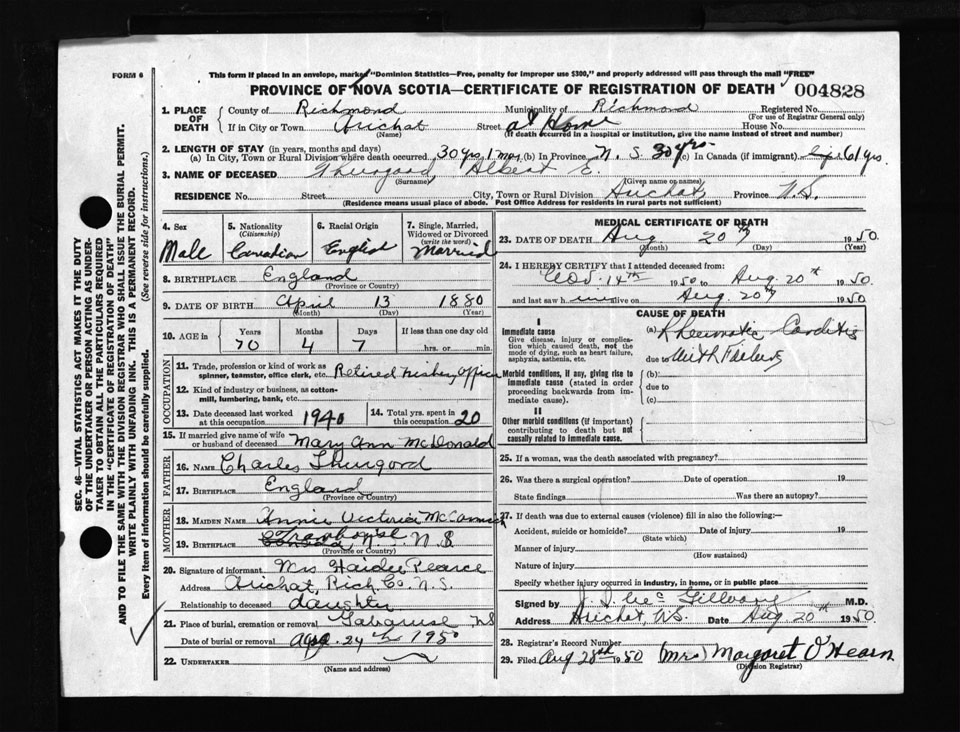 FORM 6
This form if placed in an envelope, marked "Dominion Statistics—Free, penalty for improper use $300," and properly addressed will pass through the mail "FREE"
PROVINCE OF NOVA SCOTIA—CERTIFICATE OF REGISTRATION OF DEATH 004828
1. PLACE OF DEATH { County of Richmond Municipality of Richmond Registered No.
(For use of Registrar General only)
If in City or Town Arichat Street at Home House No.
(Name) (If death occurred in a hospital or institution, give the name instead of street and number)
2. LENGTH OF STAY (in years, months and days)
(a) In City, Town or Rural Division where death occurred 30 yrs 1 mo (b) in Province N.S. 30 yrs (c) In Canada (if immigrant) 61 yrs.
3. NAME OF DECEASED Thurgood, Albert E.
(Surname) (Given name or names)
RESIDENCE No. Street City, Town or Rural Division Arichat Province N.S.
(Residence means usual place of abode. Post Office Address for residents in rural parts not sufficient)
4. Sex Male
5. Nationality (Citizenship) Canadian
6. Racial Origin English
7. Single, Married, Widowed or Divorced (write the word) Married
8. BIRTHPLACE England
(Province or Country)
9. DATE OF BIRTH April 13 1880
(Month) (Day) (Year)
10. AGE in { Years Months Days If less than one day old
70 4 7 hrs. or min.
OCCUPATION
11. Trade, profession or kind of work as spinner, teamster, office clerk, etc. Retired Fishery Officer
12. Kind of industry or business, as cotton-mill, lumbering, bank, etc.
13. Date deceased last worked at this occupation 1940
14. Total yrs. spent in this occupation 20
15. If married give name of wife or husband of deceased Mary Ann McDonald
FATHER
16. NAME Charles Thurgood
17. BIRTHPLACE England
(Province or Country)
MOTHER
18. MAIDEN NAME Annie Victoria McCormick
19. BIRTHPLACE N.S
(Province or Country)
20. Signature of informant Mrs Haidee Pearce
Address Arichat, Rich. Co. N.S.
Relationship to deceased daughter
21. Place of burial, cremation or removal N.S
Date of burial or removal Aug. 24th 1950
22. UNDERTAKER
(Name and address)
MEDICAL CERTIFICATE OF DEATH
23. DATE OF DEATH Aug 20th 1950.
(Month) (Day) (Year)
24. I HEREBY CERTIFY that I attended deceased from:
14th 1950 to Aug. 20th 1950
and last saw him alive on Aug. 20th 1950
CAUSE OF DEATH
I
Immediate cause
Give disease, injury or complication which caused death, not the mode of dying, such as heart failure, asphyxia, asthenia, etc.
(a) Rheumatic Carditis
due to with Failure
Morbid conditions, if any, giving rise to immediate cause (stated in order proceeding backwards from immediate cause).
(b)
due to
(c)
II
Other morbid conditions (if important) contributing to death but not causally related to immediate cause.
25. If a woman, was the death associated with pregnancy?
26. Was there a surgical operation? Date of operation 19
State findings Was there an autopsy?
27. If death was due to external causes (violence) fill in also the following:—
Accident, suicide or homicide? Date of injury 19
(State which)
Manner of injury
(How sustained)
Nature of injury
Specify whether injury occurred in industry, in home, or in public place
Signed by M.D.
Address Arichat, N.S. Date Aug 20th 1950
28. Registrar's Record Number
29. Filed Aug 28th 1950 (Mrs) Margaret O'Hearn
(Division Registrar)
SEC. 46—VITAL STATISTICS ACT MAKES IT THE DUTY
OF THE UNDERTAKER OR PERSON ACTING AS UNDERTAKER
TO OBTAIN ALL THE PARTICULARS REQUIRED
IN THE "CERTIFICATE OF REGISTRATION OF DEATH"
AND TO FILE THE SAME WITH THE DIVISION REGISTRAR WHO SHALL ISSUE THE BURIAL PERMIT.
WRITE PLAINLY WITH UNFADING INK. THIS IS A PERMANENT RECORD.
Every item of information should be carefully supplied. (See reverse side for instructions.)